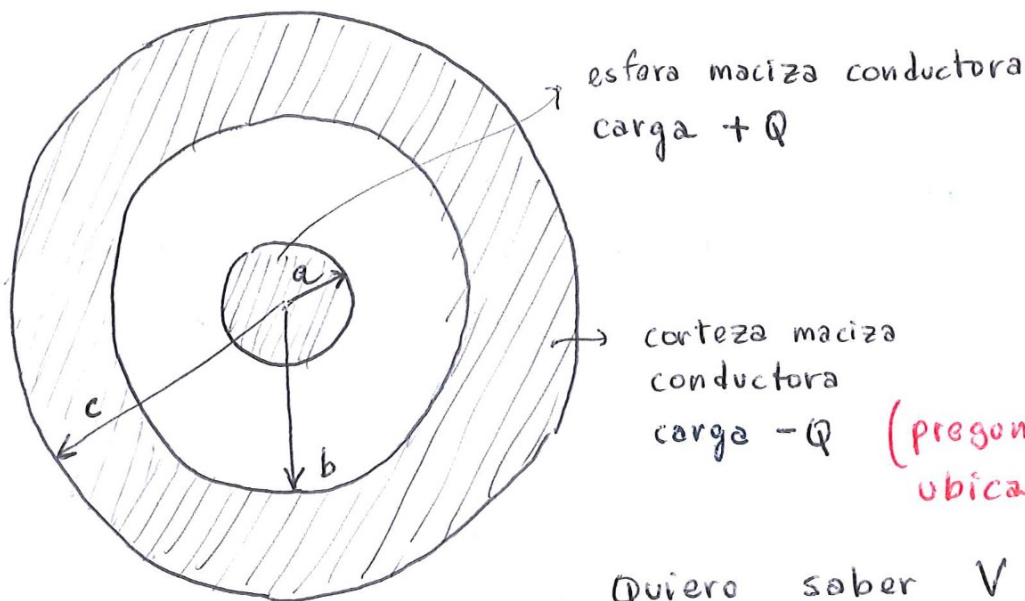 esfera maciza conductora
carga +Q
a
corteza maciza
conductora
c
carga -Q
b
Quiero saber V